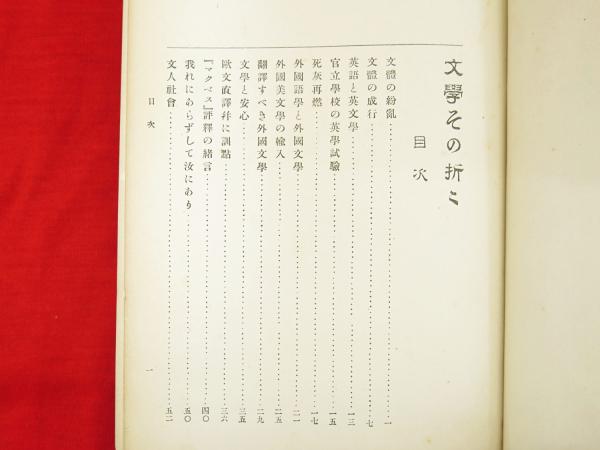 文學その折々
目次
文體の紛亂……一
文體の成行……七
英語と英文學……一三
官立學校の英學試驗……一五
死灰再燃……一七
外國語學と外國文學……二一
外國美文學の輸入……二五
翻譯すべき外國文學……二九
文學と安心……三五
歐文直譯幷に訓點……三六
『マクベス』評釋の緖言……四〇
我れにあらずして汝にあり……五〇
文人社會……五二
目次
一